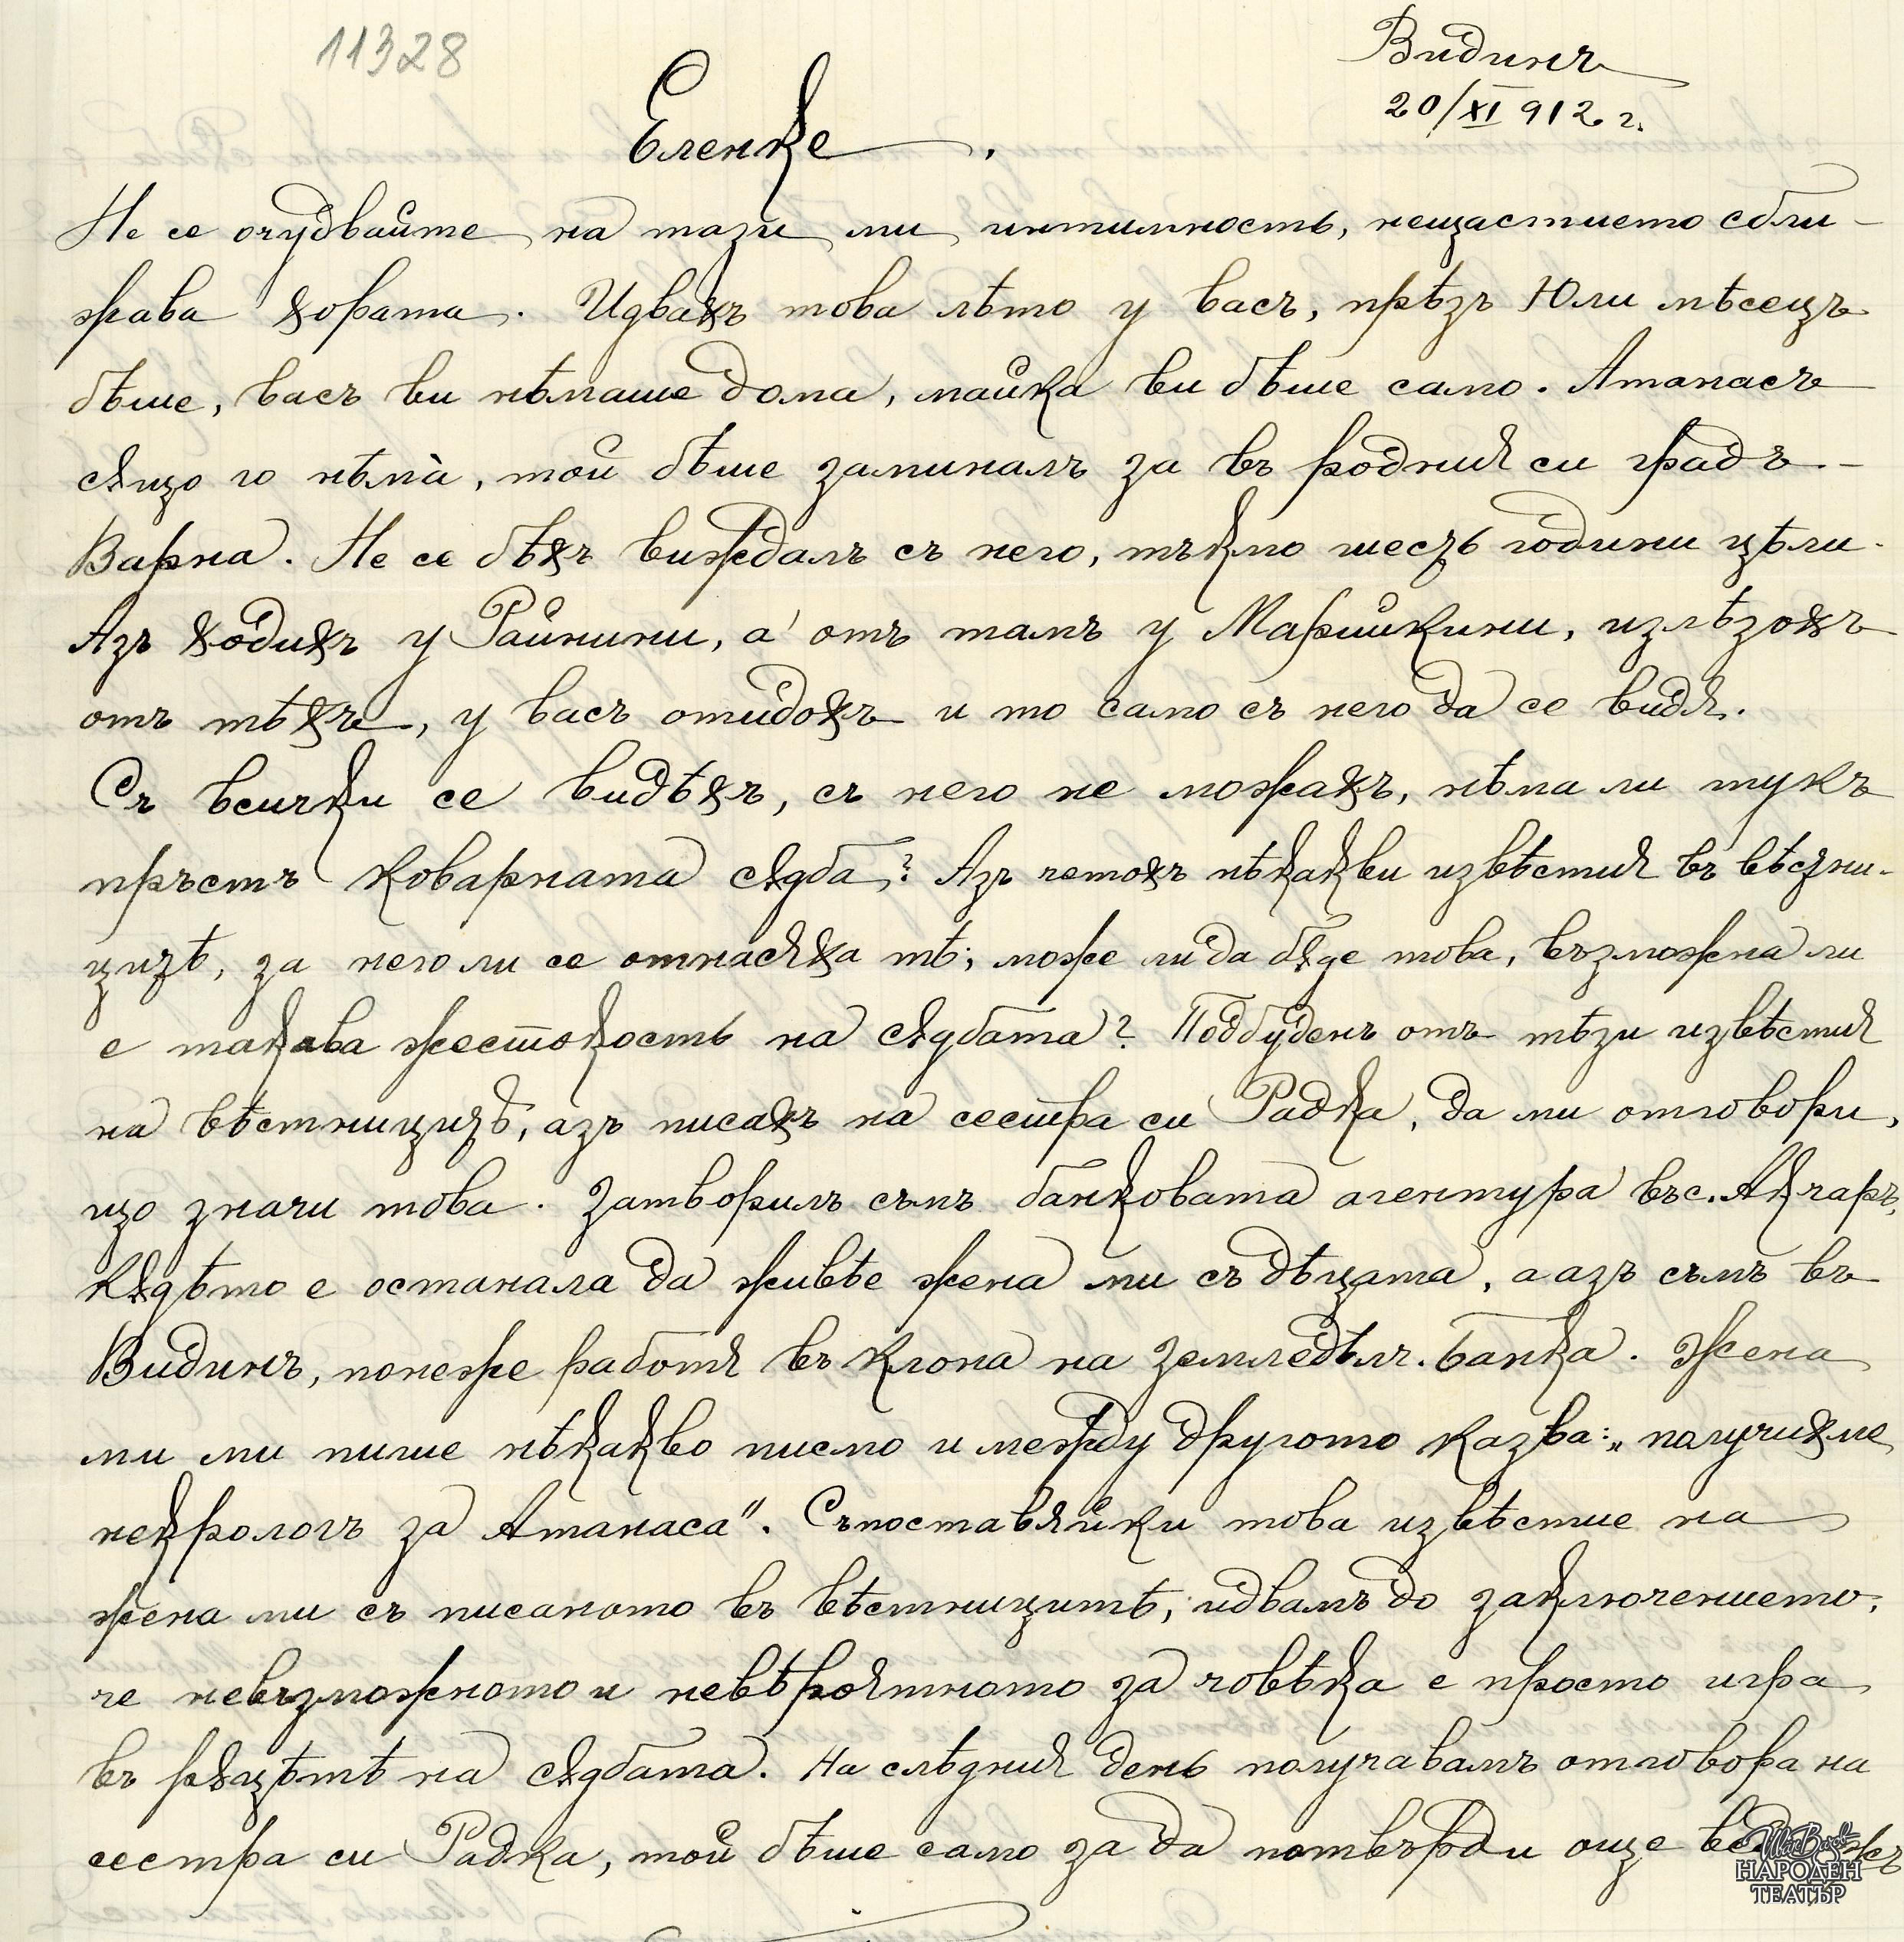 11328
Видинъ
20/XI 912 г.
Еленке,
Не се очудвайте на тази ми интимность, нещастието сбли-
жава хората. Идвахъ това лѣто у васъ, прѣзъ Юли мѣсецъ
бѣше, васъ ви нѣмаше дома, майка ви бѣше само. Атанасъ
сѫщо го нѣмà, той бѣше заминалъ за въ родния си градъ –
Варна. Не се бѣхъ виждалъ съ него, тъкмо шесть години цѣли.
Азъ ходихъ у Райнини, а отъ тамъ у Марийкини, излѣзохъ
отъ тѣхъ, у васъ отидохъ и то само съ него да се видя.
Съ всички се видѣхъ, съ него не можахъ, нѣма ли тукъ
пръстъ коварната сѫдба? Азъ четохъ нѣкакви известия въ вѣстни-
цитѣ, за него ли се отнасяха тѣ; може ли да бѫде това, възможна ли
е такава жестокость на сѫдбата? Подбуденъ отъ тѣзи извѣстия
на вѣстницитѣ, азъ писахъ на сестра си Радка, да ми отговори,
що значи това. Затворилъ съмъ банковата агентура въ с. Акчаръ,
кѫдѣто е останала да живѣе жена ми съ дѣцата, а азъ съмъ въ
Видинъ, понеже работя въ клона на Земледѣлч. Банка. Жена
ми ми пише нѣкакво писмо и между другото казва: „получихме
некрологъ за Атанаса". Съпоставяйки това извѣстие на
жена ми съ писаното въ вѣстницитѣ, идвамъ до заключението,
че невъзможното и невѣроятното за човѣка е просто игра
въ рѫцѣтѣ на сѫдбата. На слѣдния день получавамъ отговора на
сестра си Радка, той бѣше само за да потвърди още веднъжъ
НАРОДЕН
ТЕАТЪР